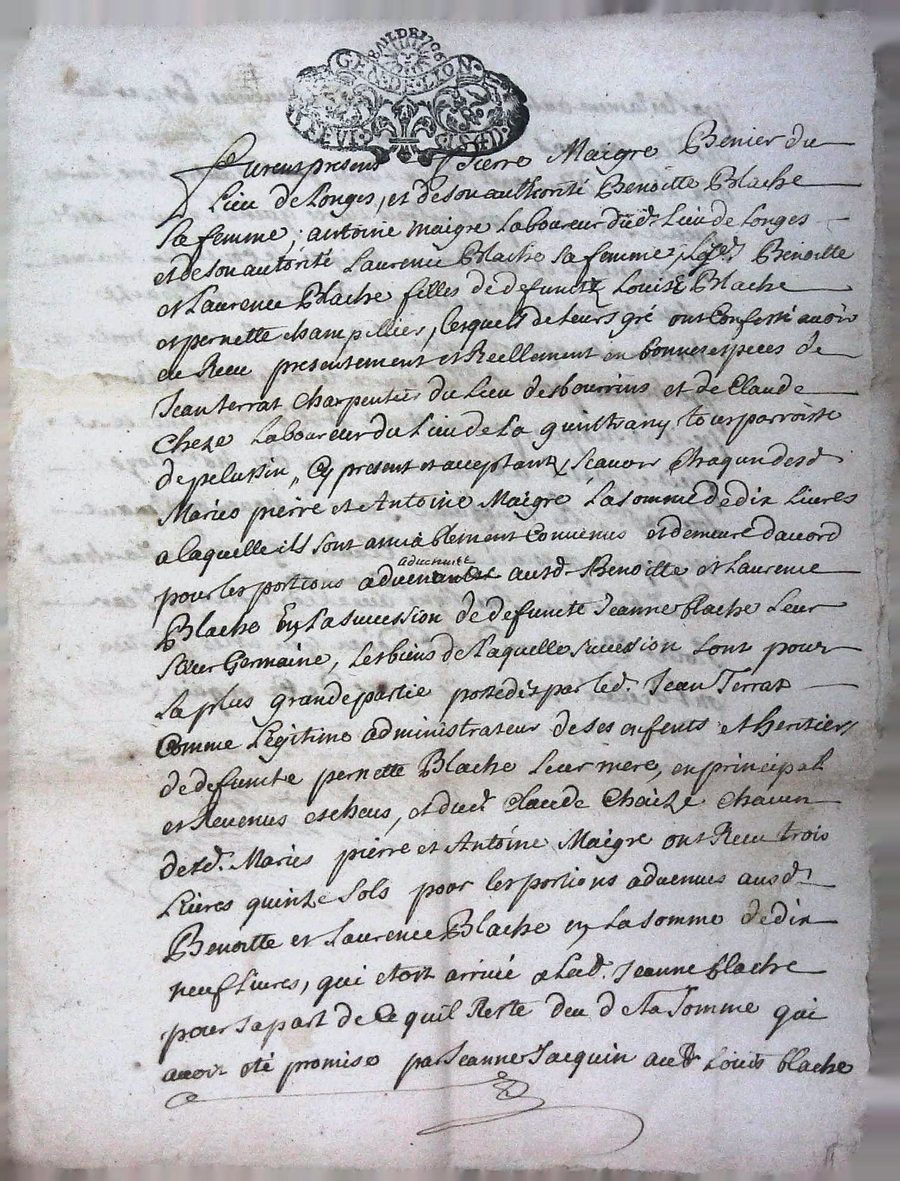 BAILDE1706
GEN · DE · LION ·
Furent presens Pierre Maigre Benier du
Lieu de Longes, et de son authorité Benoitte Blache
sa femme, antoine maigre Laboureur dud. Lieu de Longes
et de son autorité Laurence Blache sa femme, Lesd. Benoitte
et Laurence Blache filles de defunctz Louis Blache
et pernette champellier, lesquels de leurs gré ont Confessé avoir
eu Receu presentement et Reellement en bonnes especes de
Jean terrat Charpentier du Lieu des bourrins et de Claude
Cheze Laboureur du Lieu de La quintrany tours parroisse
de pelussin, Cy present et acceptantz, scavoir Chaqun desd.
Maries pierre et Antoine Maigre La somme de dix Livres
a laquelle ils sont amiablement Convenus et demeuré d'acord
advenuite
pour les portions advenantes ausd. Benoitte et Laurence
Blache En La succession de defuncte Jeanne blache Leur
sœur Germaine, Les biens de Laquelle succession sont pour
La plus grande partie possedés par led. Jean Terrat
Comme Legitime administrateur de ses enfents et heritiers
de defuncte pernette Blache Leur mere, en principal
et Revenus escheus, et dud. Claude Chaize Chacun
desd. Maries pierre et Antoine Maigre ont Receu trois
Livres quinze sols pour les portions advenues ausd.
Benoitte et Laurence Blache en La somme de dix
neuf Livres, qui etoit arrivée a Lad. Jeanne blache
pour sa part de Ce quil Reste deu de La somme qui
avoit eté promise par Jeanne Jacquin aud. Louis blache